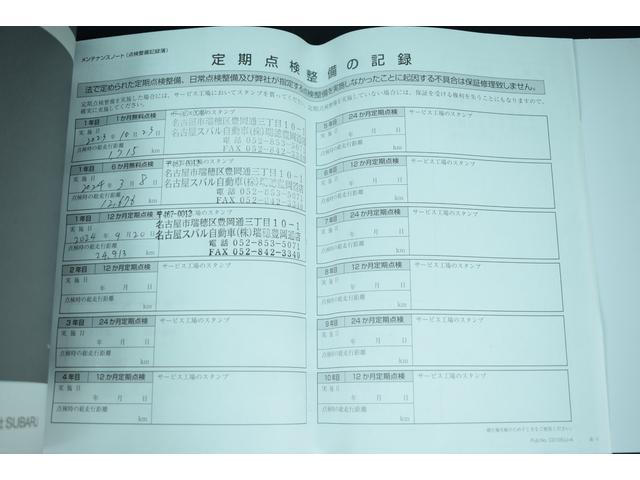 メンテナンスノート（点検整備記録簿）
定期点検整備の記録
法で定められた定期点検整備、日常点検整備及び弊社が指定する点検整備を実施しなかったことに起因する不具合は保証修理致しません。
定期点検整備を実施した場合には、サービス工場においてスタンプを貰ってください。定期点検整備を実施していない場合には、保証を受ける権利を失うこともなりますので、
確実に実施してください。
1年目 1か月無料点検 サービス工場のスタンプ
実施日
2023年10月23日
点検時の総走行距離
1,715 km
名古屋市瑞穂区豊岡通三丁目10-1
名古屋スバル自動車(株)瑞穂豊岡通店
電話 052-853-5071
FAX 052-842-3349
1年目 6か月無料点検
実施日
2024年3月8日
点検時の総走行距離
km
名古屋市瑞穂区豊岡通三丁目10-1
名古屋スバル自動車(株)瑞穂豊岡通店
電話 052-853-5071
FAX 052-842-3349
1年目 12か月定期点検
実施日
2024年9月20日
点検時の総走行距離
24,913 km
〒467-0012
名古屋市瑞穂区豊岡通三丁目10-1
名古屋スバル自動車(株)瑞穂豊岡通店
電話 052-853-5071
FAX 052-842-3349
2年目 24か月定期点検 サービス工場のスタンプ
実施日
年 月 日
点検時の総走行距離
km
3年目 24か月定期点検 サービス工場のスタンプ
実施日
年 月 日
点検時の総走行距離
km
4年目 12か月定期点検 サービス工場のスタンプ
実施日
年 月 日
点検時の総走行距離
km
5年目 24か月定期点検 サービス工場のスタンプ
実施日
年 月 日
点検時の総走行距離
km
6年目 12か月定期点検 サービス工場のスタンプ
実施日
年 月 日
点検時の総走行距離
km
7年目 24か月定期点検 サービス工場のスタンプ
実施日
年 月 日
点検時の総走行距離
km
8年目 12か月定期点検 サービス工場のスタンプ
実施日
年 月 日
点検時の総走行距離
km
9年目 24か月定期点検 サービス工場のスタンプ
実施日
年 月 日
点検時の総走行距離
km
10年目 12か月定期点検 サービス工場のスタンプ
実施日
年 月 日
点検時の総走行距離
km
SUBARU